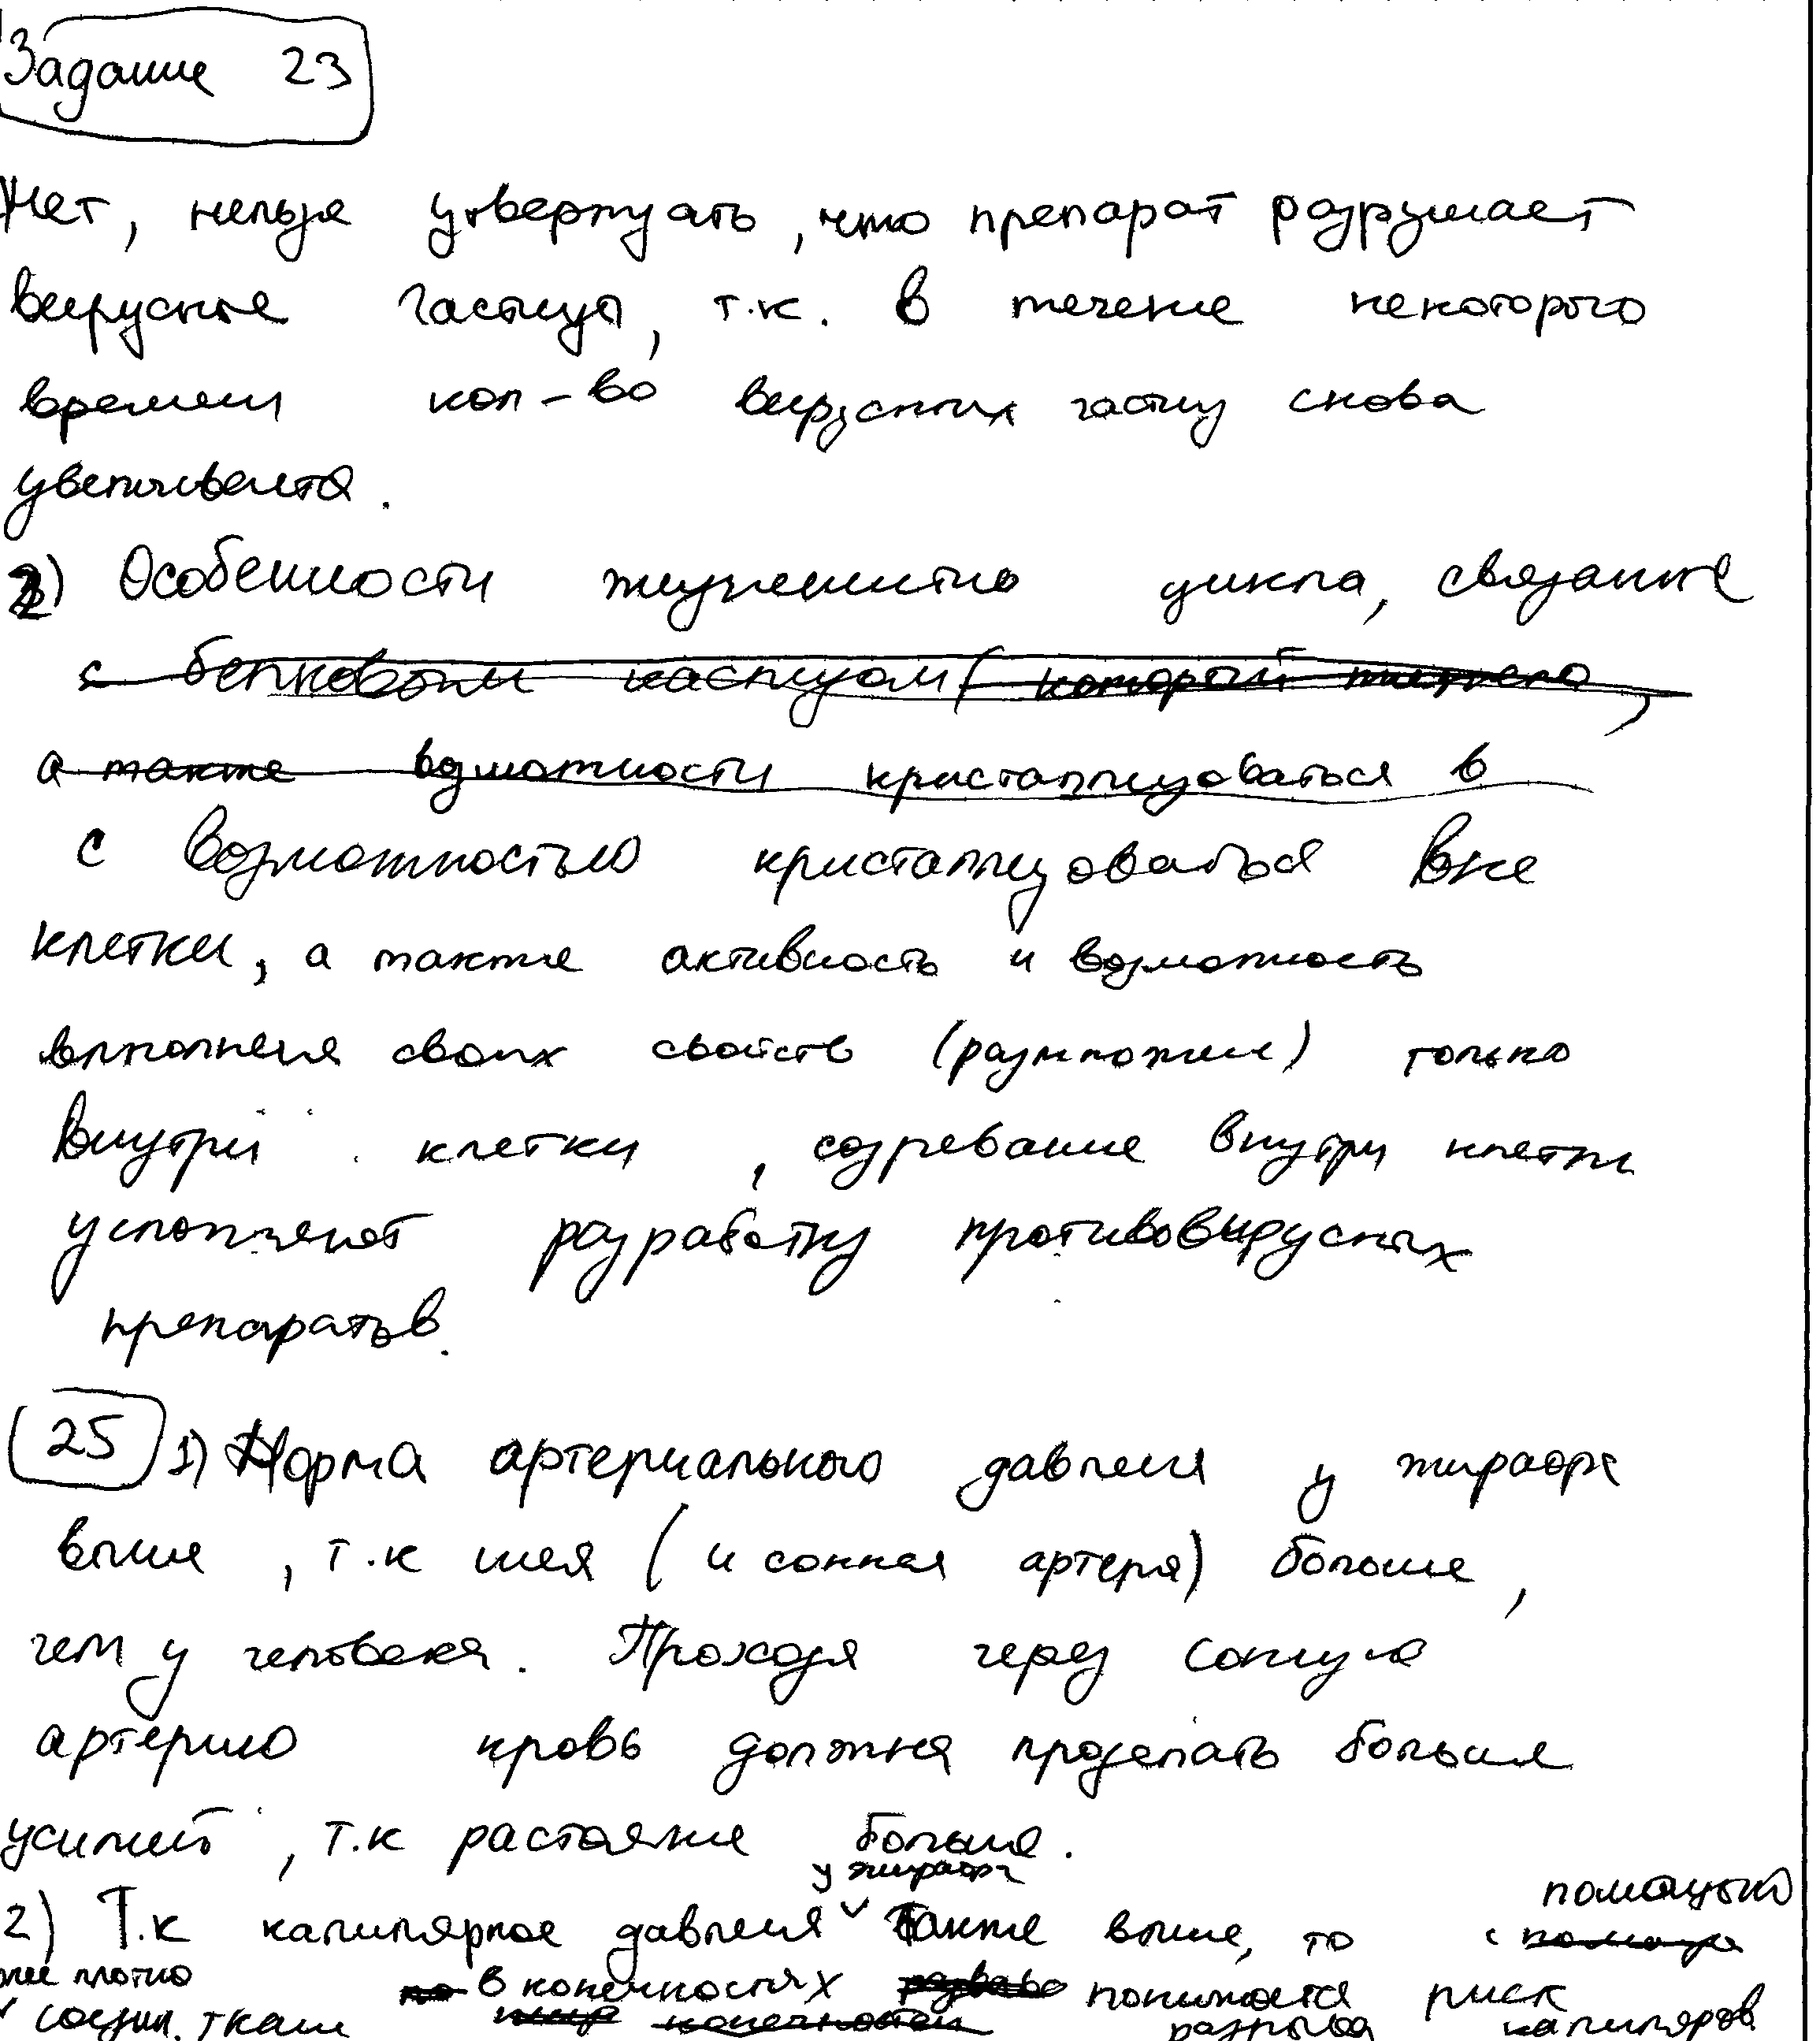 Задание 23
Нет, нельзя утверждать, что препарат разрушает
вирусные частицы, т.к. в течение некоторого
времени кол-во вирусных частиц снова
увеличивается.
2) Особенности жизненного цикла, связанные
с белковым капсидом (который тяжело,
а также возможности кристаллизоваться в
с возможностью кристаллизоваться вне
клетки, а также активность и возможность
выполнения своих свойств (размножения) только
внутри клетки, созревание внутри клетки
усложняют разработку противовирусных
препаратов.
25 1) Норма артериального давления у жирафа
выше, т.к шея (и сонная артерия) больше,
чем у человека. Проходя через сонную
артерию кровь должна проделать больше
усилий, т.к растояние больше.
у жирафа
2) Т.к капилярное давления также выше, то с помощью
плотно в конечностях понижается риск
соедин. ткани разрыва капиляров